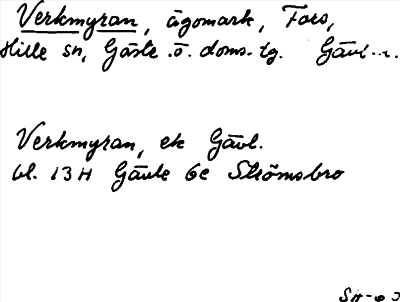 Verkmyran, ägomark, Fors,
Hille sn, Gästr. ö. doms. tg. Gävl. l.
Verkmyran, ek Gävl.
bl. 13H Gävle 6e Strömsbro